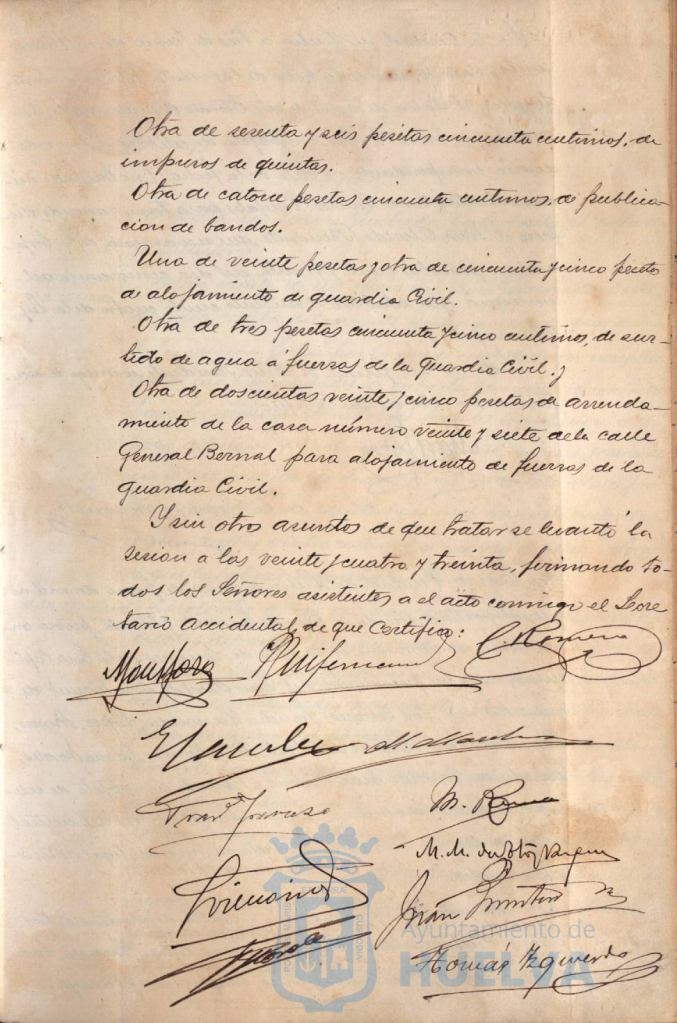 Otra de sesenta y seis pesetas cincuenta centimos, de
impresos de quintas.
Otra de catorce pesetas cincuenta centimos, de publica-
cion de bandos.
Una de veinte pesetas y otra de cincuenta y cinco pesetas
de alojamiento de guardia Civil.
Otra de tres pesetas cincuenta y cinco centimos, de sur-
tido de agua á fuerzas de la Guardia Civil. y
Otra de doscientas veinte y cinco pesetas de arrenda-
miento de la casa número veinte y siete de la calle
General Bernal para alojamiento de fuerzas de la
guardia Civil.
Y sin otros asuntos de que tratar se levantó la
sesion á las veinte y cuatro y treinta, firmando to-
dos los Señores asistentes a el acto conmigo el Secre
tario accidental, de que Certifico:
C. Romero
M.
Juan
Ayuntamiento de
HUELVA
Tomás Izquierdo